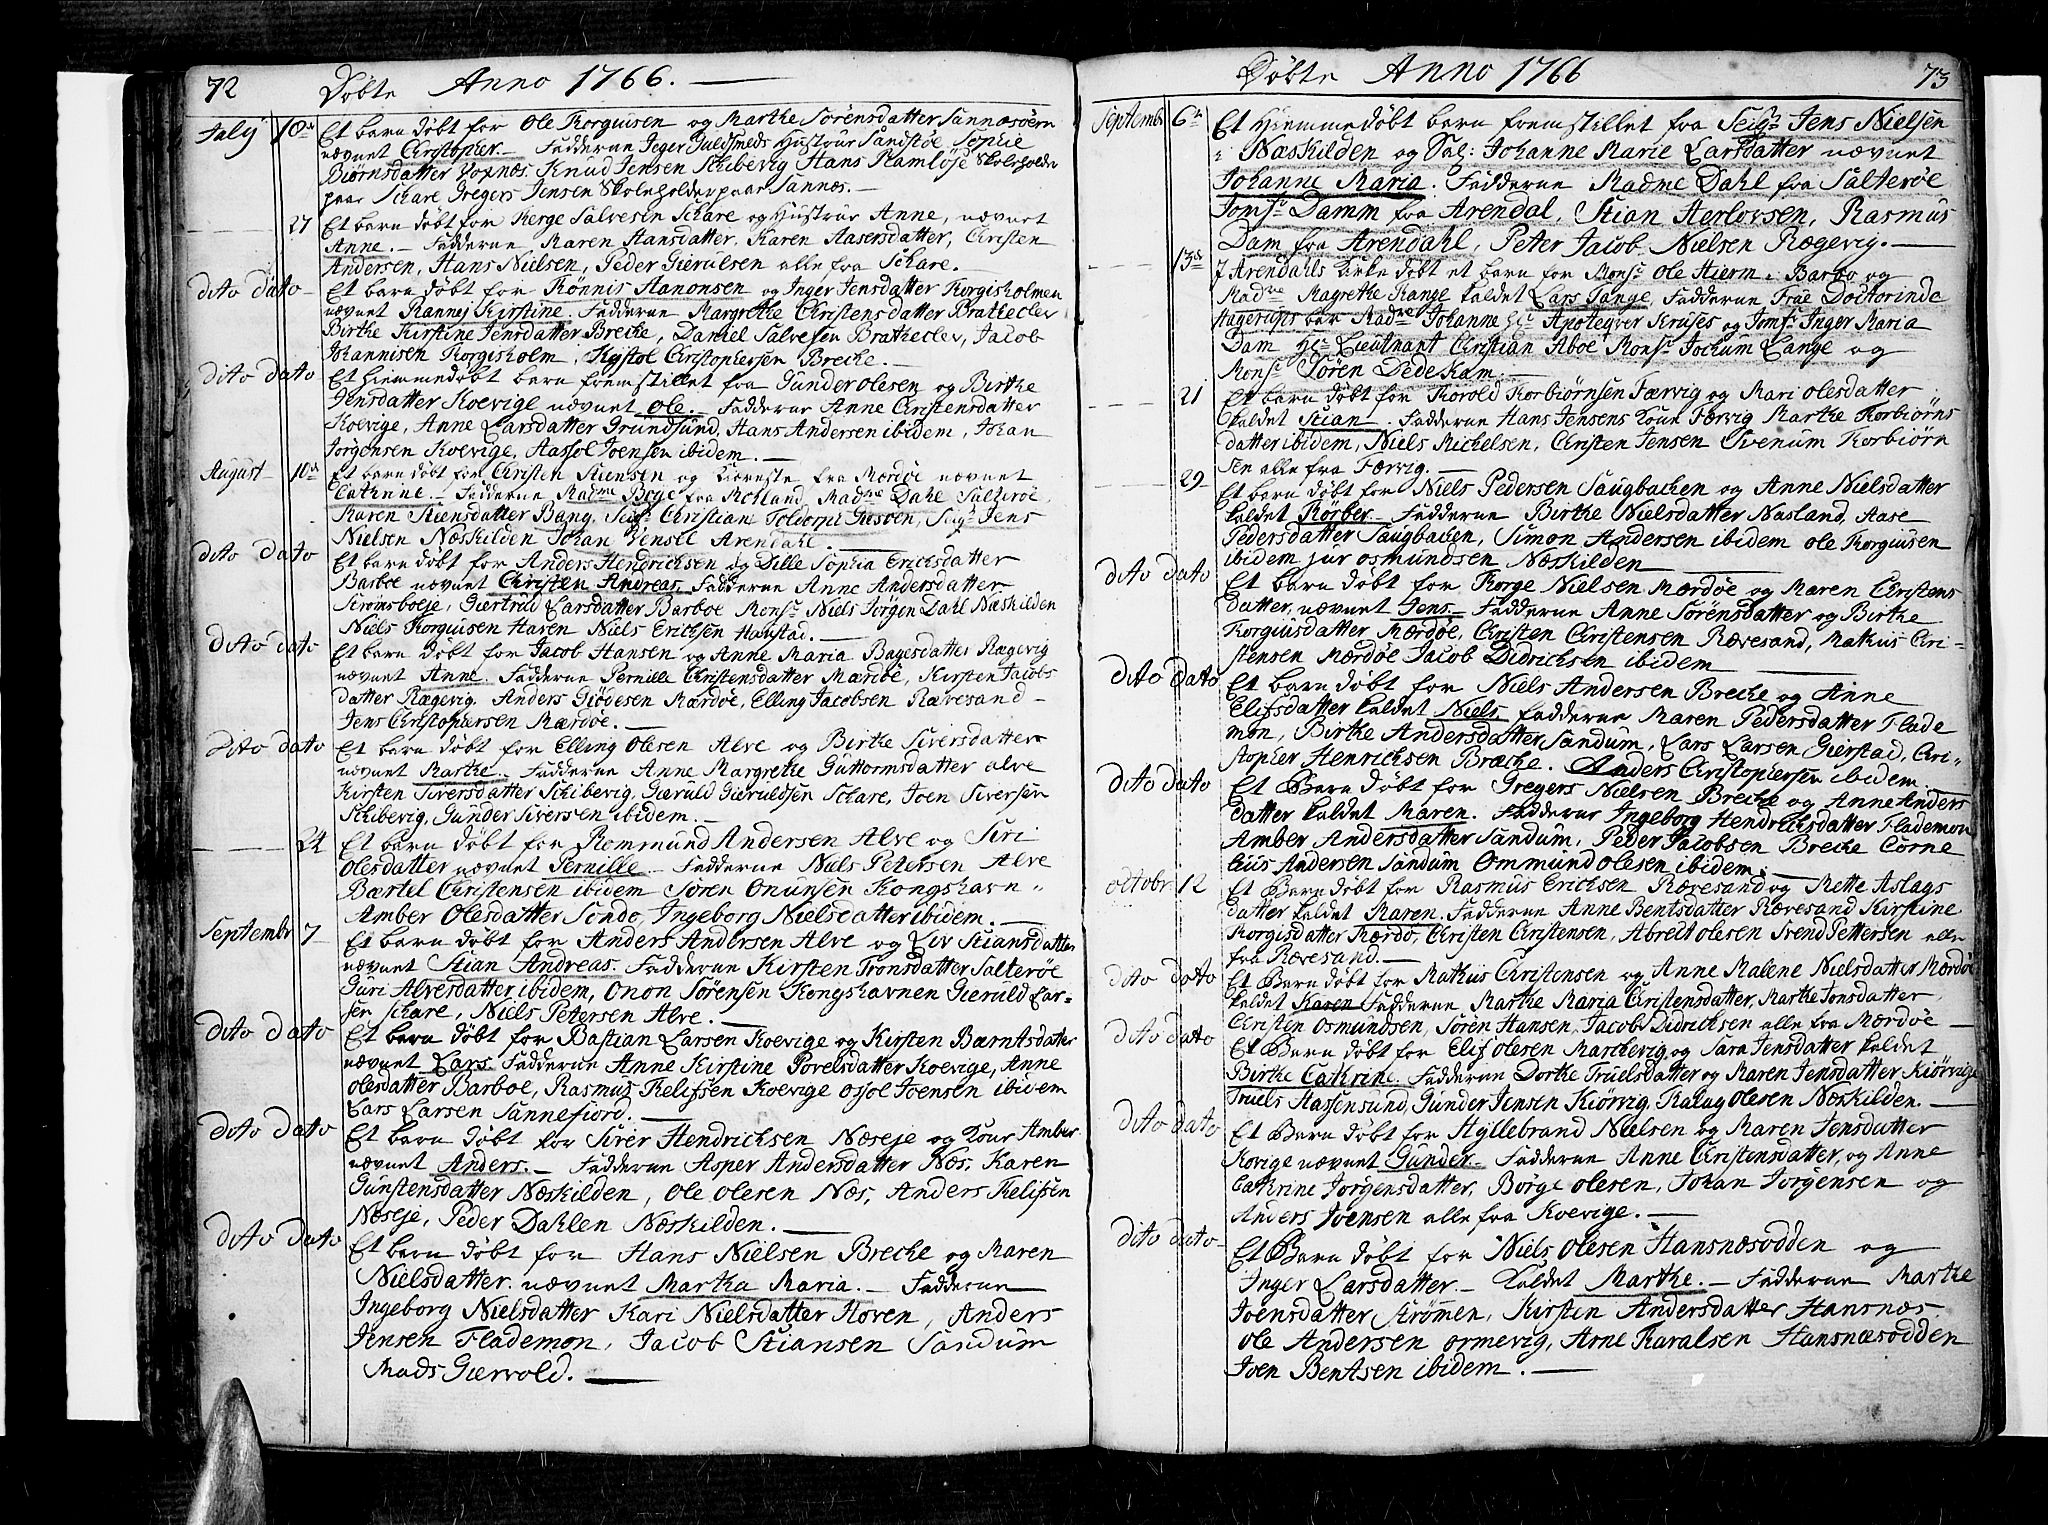 72 Döbte Anno 1766.
July 10de Et barn döbt for Ole Torguisen og Marthe Sörensdatter Sannesöern
nævnet Christopher. Fadderne Jeger Guldsmeds Hustrue Sandstöe, Sophie
Biörnsdatter Voxnæs. Knud Jensen Skibevig Hans Ramlöse Skoleholder
paa Schare Gregers Jensen Skoleholder paa Sannæs.
27 Et barn döbt for Terge Salvesen Schare og Hustrue Anne, nævnet
Anne. Fadderne Maren Hansdatter, Karen Aasersdatter, Christen
Andersen, Hans Nielsen, Peder Gierulsen alle fra Schare.
dito dato Et barn döbt for Tönnis Aanonsen og Inger Jensdatter Torgisholmen
nævnet Rannej Kirstine. Fadderne Margrethe Christensdatter Bratheclev
Birthe Kirstine Jensdatter Brecke, Daniel Salvesen Bratheclev, Jacob
Johannisen Torgisholm, Kystol Christophersen Brecke.
dito dato Et hiemmedöbt barn fremstillet fra Gunder Olesen og Birthe
Jensdatter Koevige nævnet Ole. Fadderne Anne Christensdatter
Koevige, Anne Larsdatter Grundsund, Hans Andersen ibidem, Johan
Jörgensen Koevige, Hassol Joensen ibidem.
August 10de Et barn döbt for Christen Stiensen og Kiereste fra Mærdöe nævnet
Cathrine. Fadderne Madme Boye fra Rofland, Madme Dahl Salteröe
Maren Stiensdatter Bang, Seigr Christian Toldorph Giesöen, Seigr Jens
Nielsen Næskilden Johan Vensel Arendahl.
dito dato Et barn döbt for Anders Hendricksen og Dille Sophia Ericksdatter
Barboe nævnet Christen Andreas. Fadderne Anne Andersdatter
Strömsboeje, Giertrud Larsdatter Barboe Monsr Niels Jörgen Dahl Næskilden
Niels Torguisen Haven Niels Ericksen Haustad.
dito dato Et barn döbt for Jacob Hansen og Anne Maria Bagesdatter Rægevig
nævnet Anne. Fadderne Pernille Christensdatter Mærdöe, Kirsten Jacobs
datter Rægevig. Anders Giödesen Mærdöe, Elling Jacobsen Rævesand
Jens Christophersen Mærdöe.
dito dato Et barn döbt for Elling Olesen Alve og Birthe Siversdatter
nævnet Marthe. Fadderne Anne Margrethe Guttormsdatter Alve
Kirsten Siversdatter Schibevig, Gieruld Gieruldsen Schare, Joen Siversen
Skibevig, Gunder Siversen ibidem.
24 Et barn döbt for Rommund Andersen Alve og Siri
Olesdatter nævnet Pernille. Fadderne Niels Petersen Alve
Bærtel Christensen ibidem Sören Onunsen Kongshavn
Amber Olesdatter Sondo, Ingeborg Nielsdatter ibidem.
Septembr 7 Et barn döbt for Anders Andersen Alve og Liv Stiansdatter
nævnet Stian Andreas. Fadderne Kirsten Tronsdatter Salteröe
Guri Alversdatter ibidem, Onon Sörensen Kongshavnen Gieruld Lar-
sen Schare, Niels Petersen Alve.
dito dato Et barn döbt for Bastian Larsen Koevige og Kirsten Bærntsdatter
nævnet Lars. Fadderne Anne Kirstine Povelsdatter Koevige, Anne
Olesdatter Barboe, Rasmus Thelifsen Koevige Ossol Joensen ibidem
Lars Larsen Sannefiord.
dito dato Et barn döbt for Sirer Hendricksen Næseje og Kone Amber
nævnet Anders. Fadderne Asper Andersdatter Næs, Karen
Gunstensdatter Næskilden, Ole Olesen Næs, Anders Thelifsen
Næseje, Peder Dahlen Næskilden.
dito dato Et barn döbt for Hans Nielsen Brecke og Maren
Nielsdatter nævnet Martha Maria. Fadderne
Ingeborg Nielsdatter Kari Nielsdatter Hoven, Anders
Jensen Flademon, Jacob Stiansen Sandum
Mads Giervold.
Döbte Anno 1766 73
Septembr 6te Et Hiemmedöbt barn fremstillet fra Seigr Jens Nielsen
i Næskilden og Sal: Johanne Marie Larsdatter nævnet
Johanne Maria. Fadderne Madme Dahl fra Salteröe
Jomfr Damm fra Arendal, Stian Herlovsen, Rasmus
Dam fra Arendahl, Peter Jacob Nielsen Rægevig.
13de J Arendahls Kirke döbt et barn for Monsr Ole Hierm i Barbo og
Madme Magrethe Tange kaldet Lars Tange, Fadderne Frue Doctorinde
Hagerups bar Madme Johanne Hr Apoteqver Kruses og Jomfr Inger Maria
Dam Hr Lieutnant Christian Aboe Monsr Jochum Lange og
Monsr Sören Dedekam.
21 Et barn döbt for Thorold Torbiörnsen Færvig og Mari Olesdatter
kaldet Stian. Fadderne Hans Jensens Kone Færvig Marthe Torbiörns
datter ibidem, Niels Michelsen, Christen Jensen Svenum Torbiörn
sen alle fra Færvig.
29 Et barn döbt for Niels Pedersen Saugbacken og Anne Nielsdatter
kaldet Törber. Fadderne Birthe Nielsdatter Nasland, Aase
Pedersdatter Saugbacken, Simon Andersen ibidem Ole Torguisen
ibidem Jur Osmundsen Næskilden
dito dato Et barn döbt for Torge Nielsen Mærdöe og Maren Christens
datter, nævnet Jens. Fadderne Anne Sörensdatter og Birthe
Torguisdatter Mærdöe, Christen Christensen Rævesand, Mathis Chri-
stensen Mærdöe Jacob Didricksen ibidem
dito dato Et barn döbt for Niels Andersen Brecke og Anne
Elifsdatter kaldet Niels Fadderne Maren Pedersdatter Flade
mon, Birthe Andersdatter Sandum, Lars Larsen Gierstad, Chri-
stopher Henricksen Bræcke. Anders Christophersen ibidem.
dito dato Et Barn döbt for Gregers Nielsen Brecke og Anne Anders
datter kaldet Maren. Fadderne Ingeborg Hendricksdatter Flademon
Amber Andersdatter Sandum, Peder Jacobsen Brecke Corne
lius Andersen Sandum Ommund Olesen ibidem.
Octobr 12 Et Barn döbt for Rasmus Ericksen Rævesand og Mette Aslags
datter kaldet Maren. Fadderne Anne Bentsdatter Rævesand Kirstine
Torgisdatter Mærdö, Christen Christensen, Abrelt Olesen Svend Pettersen alle
fra Rævesand.
dito dato Et Barn döbt for Mathis Christensen og Anne Malene Nielsdatter Mærdöe
kaldet Karen Fadderne Marthe Maria Christensdatter, Marthe Jonsdatter
Christen Osmundsen, Sören Hansen, Jacob Didricksen alle fra Mærdöe
dito dato Et Barn döbt for Elif Olesen Marckevig og Sara Jensdatter kaldet
Birthe Cathrine. Fadderne Dorthe Truelsdatter og Maren Jensdatter Kiörvige
Truels Hassensund, Gunder Jensen Kiörvig, Kalug Olesen Næskilden.
dito dato Et Barn döbt for Hyllebrand Nielsen og Maren Jensdatter
Kovige nævnet Gunder. Fadderne Anne Christensdatter, og Anne
Cathrine Jörgensdatter, Börge Olesen, Johan Jörgensen og
Anders Joensen alle fra Koevige.
dito dato Et Barn döbt for Niels Olesen Hansnæsodden og
Inger Larsdatter. Kaldet Marthe. Fadderne Marthe
Joensdatter Strömen, Kirsten Andersdatter Hansnæs
Ole Andersen Ormevig, Arne Taralsen Hansnæsodden
Joen Bentsen ibidem.